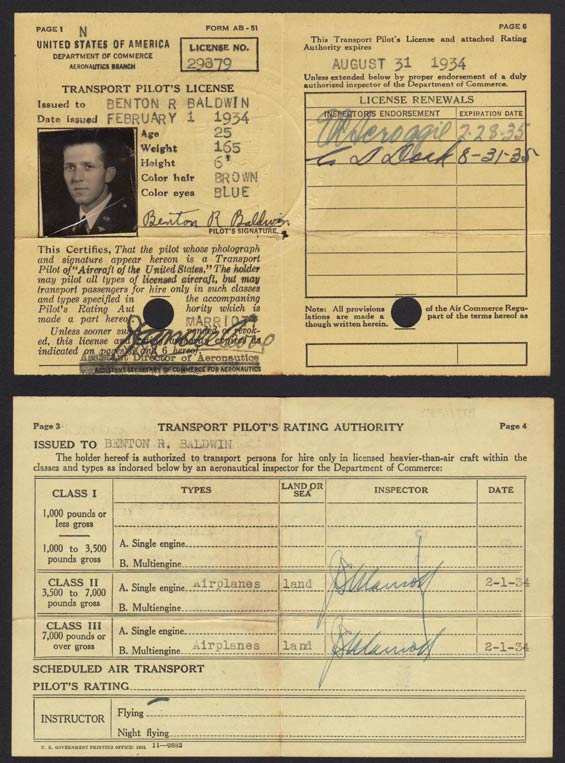 PAGE 1 N FORM AB-51
UNITED STATES OF AMERICA
DEPARTMENT OF COMMERCE
AERONAUTICS BRANCH
LICENSE NO.
29879
TRANSPORT PILOT'S LICENSE
Issued to BENTON R BALDWIN
Date issued FEBRUARY 1 1934
Age 25
Weight 165
Height 6'
Color hair BROWN
Color eyes BLUE
Benton R Baldwin
PILOT'S SIGNATURE.
This Certifies, That the pilot whose photograph
and signature appear hereon is a Transport
Pilot of "Aircraft of the United States." The holder
may pilot all types of licensed aircraft, but may
transport passengers for hire only in such classes
and types specified in the accompaning
Pilot's Rating Aut hority which is
made a part hereof. MARRIOTT
Unless sooner sus pended or revok-
ed, this license and
indicated on pages 6 hereof
Assistant Director of Aeronautics
ASSISTANT SECRETARY OF COMMERCE FOR AERONAUTICS
PAGE 6
This Transport Pilot's License and attached Rating
Authority expires
AUGUST 31 1934
Unless extended below by proper endorsement of a duly
authorized inspector of the Department of Commerce.
LICENSE RENEWALS
INSPECTOR'S ENDORSEMENT EXPIRATION DATE
Scroggie 2-28-35
8-31-35
Note: All provisions of the Air Commerce Regu-
lations are made a part of the terms hereof as
though written herein.
Page 3 TRANSPORT PILOT'S RATING AUTHORITY Page 4
ISSUED TO BENTON R. BALDWIN
The holder hereof is authorized to transport persons for hire only in licensed heavier-than-air craft within the
classes and types as indorsed below by an aeronautical inspector for the Department of Commerce:
CLASS I TYPES LAND OR SEA INSPECTOR DATE
1,000 pounds or
less gross
1,000 to 3,500
pounds gross
A. Single engine
B. Multiengine
CLASS II
3,500 to 7,000
pounds gross
A. Single engine Airplanes land 2-1-34
B. Multiengine
CLASS III
7,000 pounds or
over gross
A. Single engine
B. Multiengine Airplanes land 2-1-34
SCHEDULED AIR TRANSPORT
PILOT'S RATING
INSTRUCTOR
Flying
Night flying
U. S. GOVERNMENT PRINTING OFFICE: 1932 11-9882